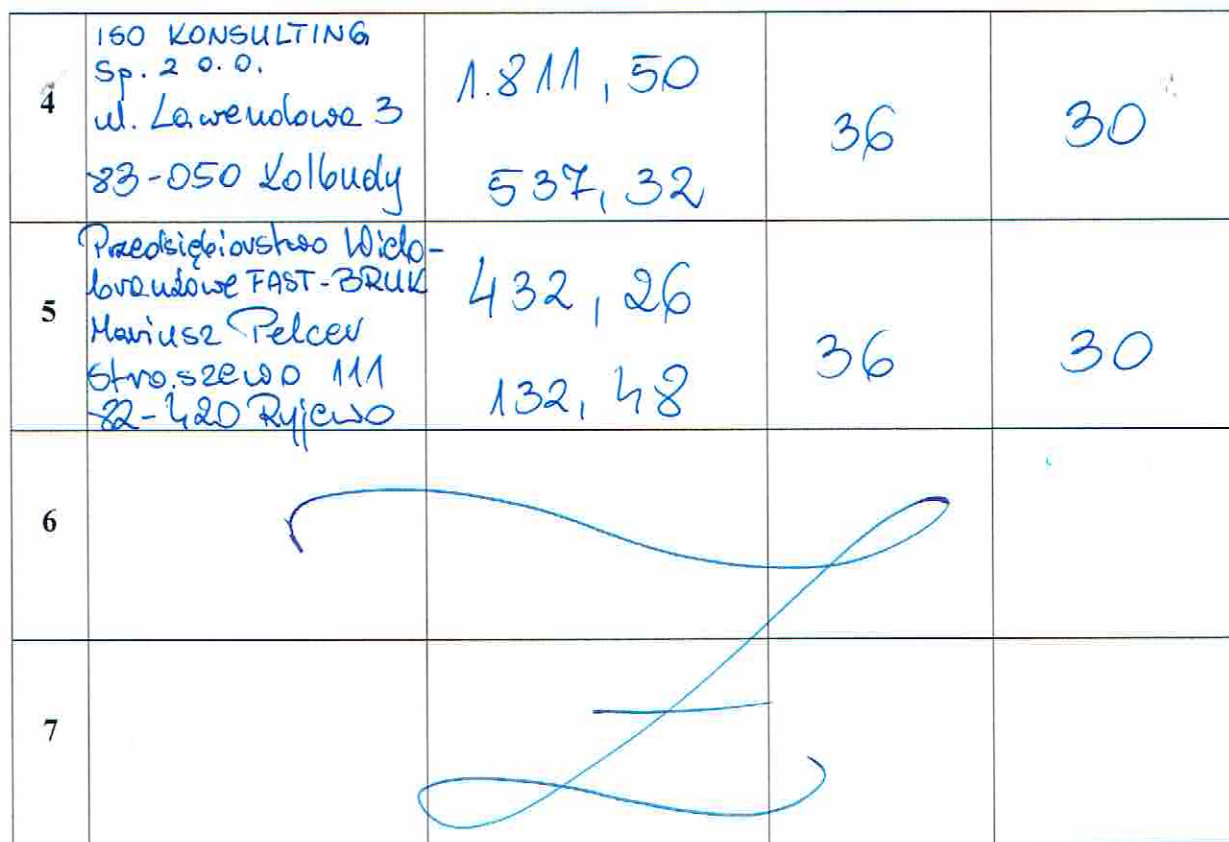 4
ISO KONSULTING
Sp. z o.o.
ul. Lawendowa 3
83-050 Kolbudy
1.811,50
537,32
36
30
5
Przedsiębiorstwo Wielo-
branżowe FAST-BRUK
Mariusz Pelcer
Straszewo 111
82-420 Ryjewo
432,26
132,48
36
30
6
7